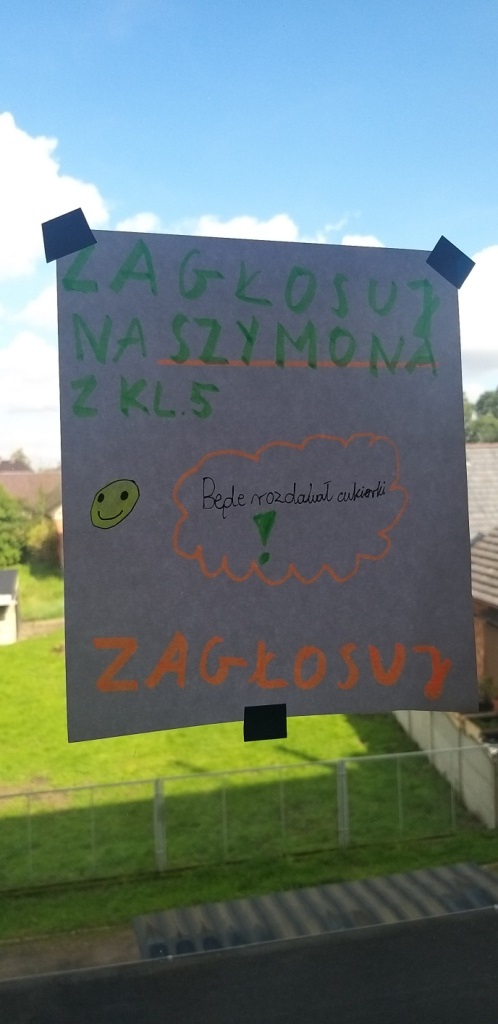 ZAGŁOSUJ
NA SZYMONA
Z KL.5
Będe rozdawał cukierki
!
ZAGŁOSUJ